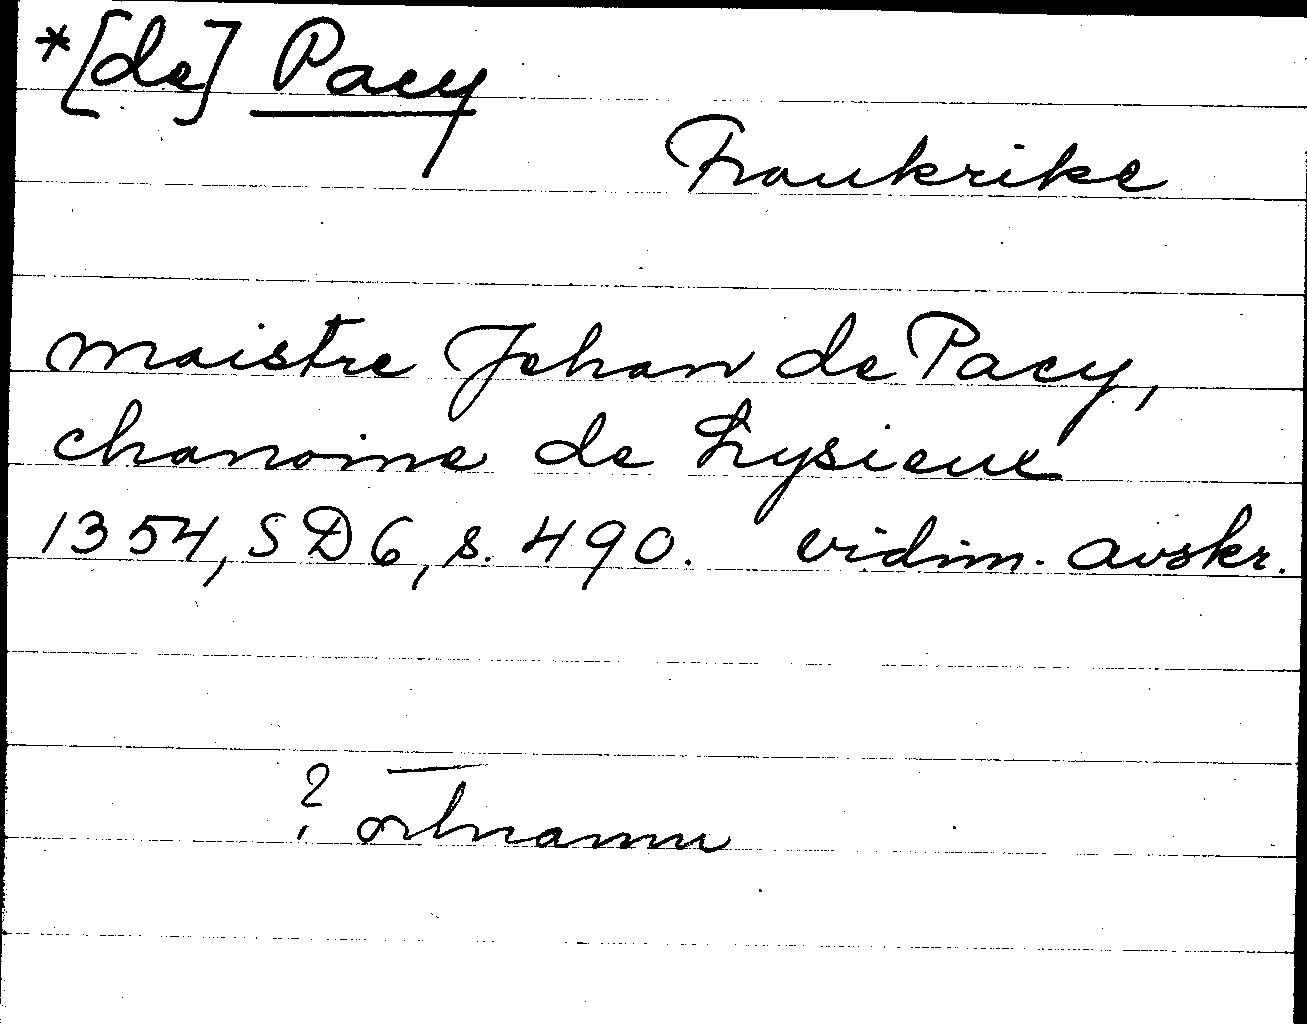 *[de] Pacy
Frankrike
maistre Jehan de Pacy,
chanoine de Lysieux
1354, SD6, s. 490. vidim. avskr.
? ortnamn